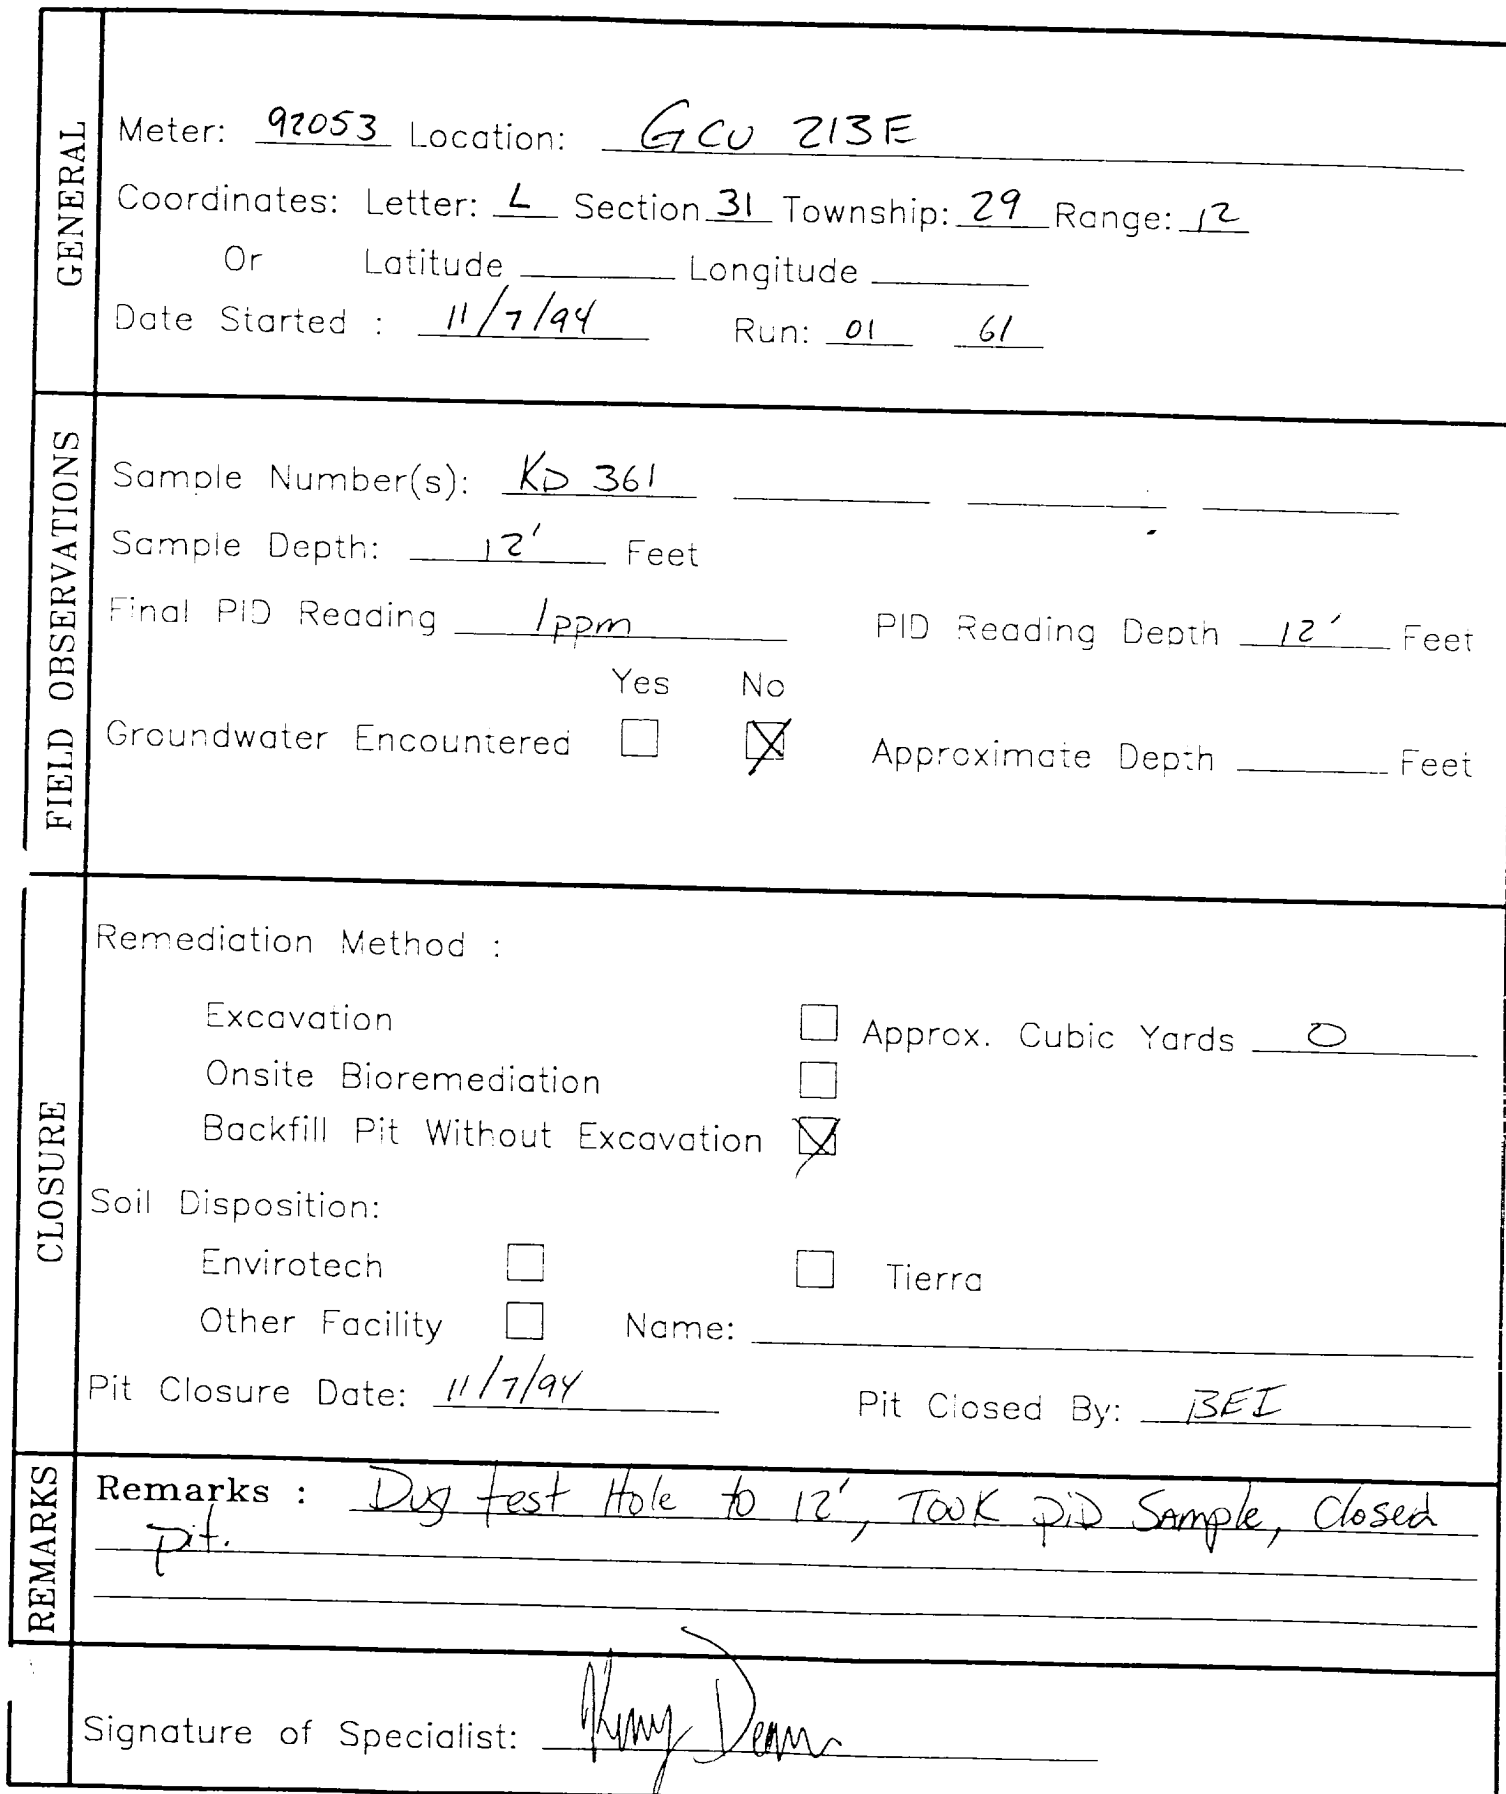 GENERAL
Meter: 92053 Location: GCU 213E
Coordinates: Letter: L Section 31 Township: 29 Range: 12
Or Latitude Longitude
Date Started : 11/7/94 Run: 01 61
FIELD OBSERVATIONS
Sample Number(s): KD 361
Sample Depth: 12' Feet
Final PID Reading 1ppm PID Reading Depth 12' Feet
Yes No
Groundwater Encountered Approximate Depth Feet
CLOSURE
Remediation Method :
Excavation Approx. Cubic Yards 0
Onsite Bioremediation
Backfill Pit Without Excavation
Soil Disposition:
Envirotech Tierra
Other Facility Name:
Pit Closure Date: 11/7/94 Pit Closed By: BEI
REMARKS
Remarks : Dug test Hole to 12', TOOK PiD Sample, Closed
pit.
Signature of Specialist: